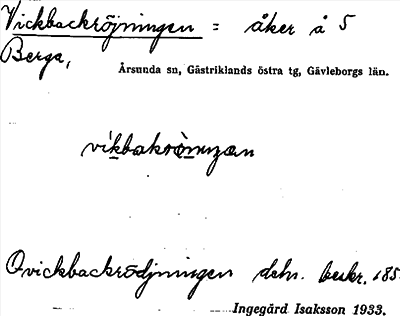 Vickbackröjningen = åker å 5
Berga,
Årsunda sn, Gästriklands östra tg, Gävleborgs län.
Qvickbackrödjningen dchn. beskr. 185
Ingegärd Isaksson 1933.